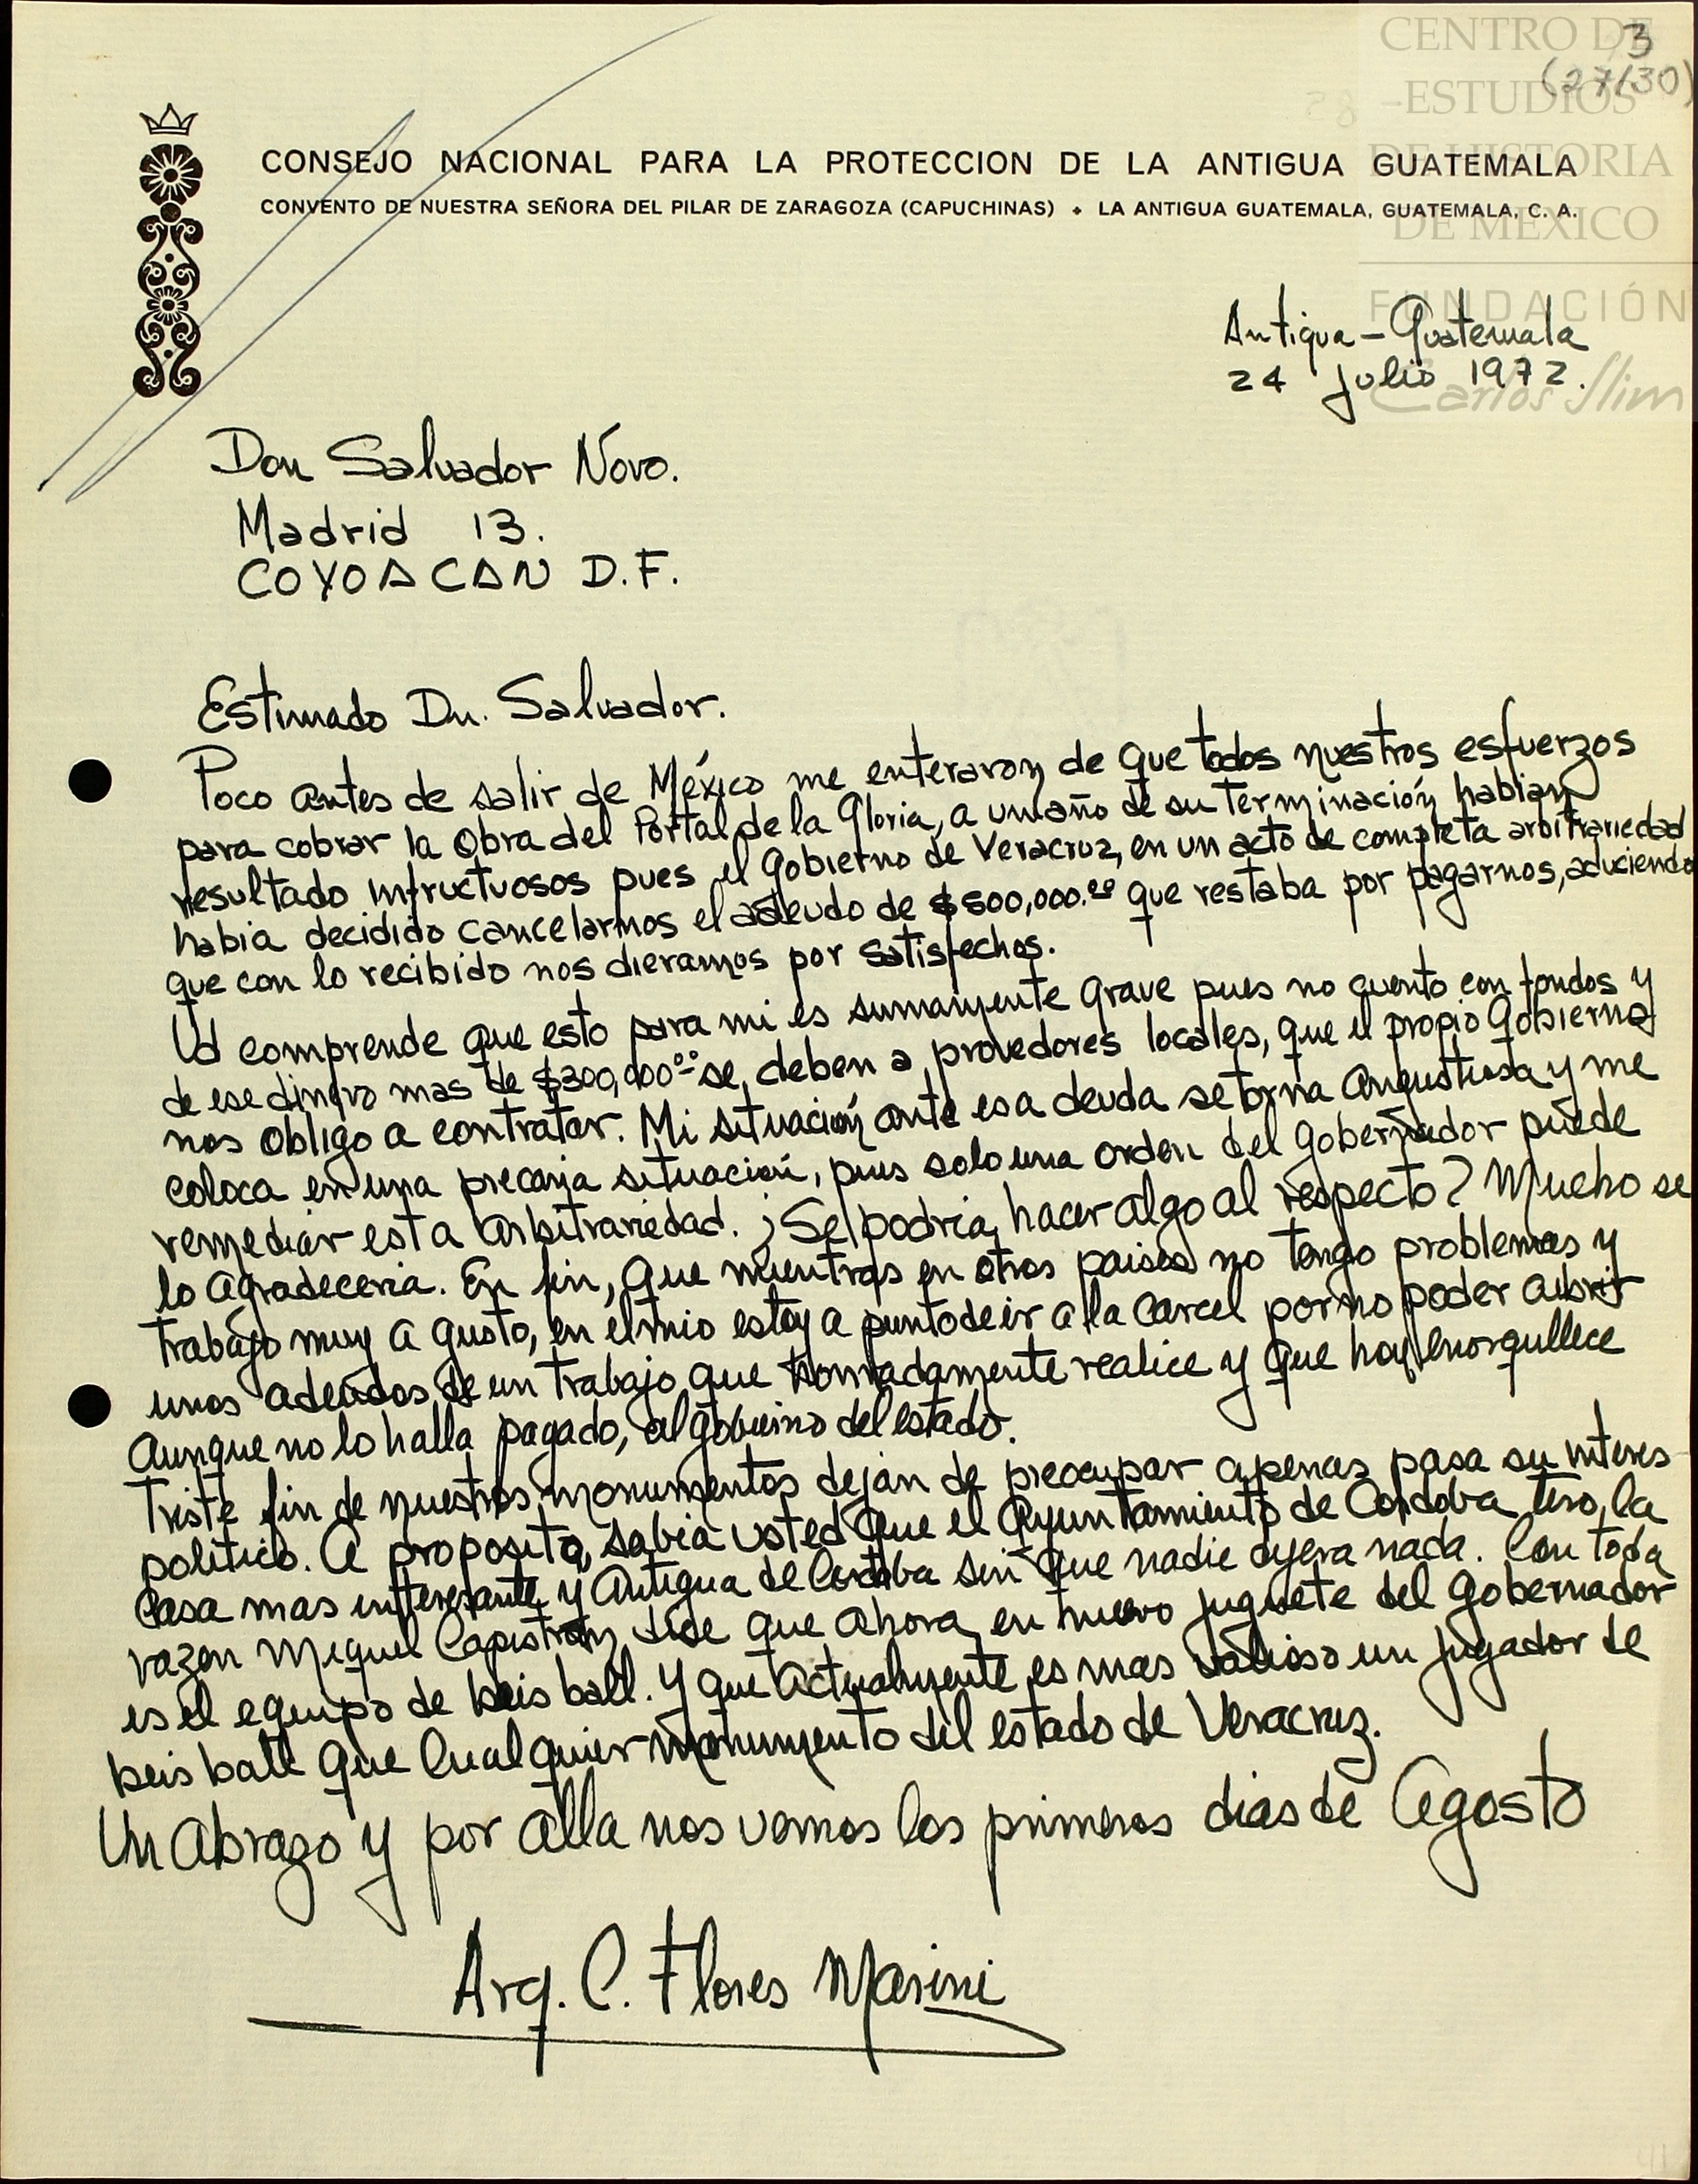 CENTRO DE
ESTUDIOS
DE HISTORIA
DE MEXICO
FUNDACIÓN
Carlos Slim
3
(27/30)
CONSEJO NACIONAL PARA LA PROTECCION DE LA ANTIGUA GUATEMALA
CONVENTO DE NUESTRA SEÑORA DEL PILAR DE ZARAGOZA (CAPUCHINAS) ♦ LA ANTIGUA GUATEMALA, GUATEMALA, C. A.
Antigua - Guatemala
24 Julio 1972.
Don Salvador Novo.
Madrid 13.
COYOACAN D.F.
Estimado Dn. Salvador.
Poco antes de salir de México me enteraron de que todos nuestros esfuerzos
para cobrar la Obra del Portal de la Gloria, a un año de su terminación habian
resultado infructuosos pues el Gobierno de Veracruz, en un acto de completa arbitrariedad
habia decidido cancelarnos el adeudo de $500,000.00 que restaba por pagarnos, aduciendo
que con lo recibido nos dieramos por satisfechos.
Ud comprende que esto para mi es sumamente grave pues no cuento con fondos y
de ese dinero mas de $300,000.00 se deben a provedores locales, que el propio Gobierno
nos obligo a contratar. Mi situación ante esa deuda se torna angustiosa y me
coloca en una precaria situación, pues solo una orden del Gobernador puede
remediar esta arbitrariedad. ¿Se podria hacer algo al respecto? Mucho se
lo agradeceria. En fin, que mientras en otros paises no tengo problemas y
trabajo muy a gusto, en el mio estoy a punto de ir a la carcel por no poder cubrir
unos adeudos de un trabajo que honradamente realice y que hoy enorgullece
aunque no lo halla pagado, al gobierno del estado.
Triste fin de nuestros monumentos dejan de preocupar apenas pasa su interes
politico. A proposito, sabia usted que el Ayuntamiento de Cordoba tiro la
Casa mas interesante y antigua de Cordoba sin que nadie dijera nada. Con toda
razon Miguel Capistran dice que ahora en nuevo juguete del Gobernador
es el equipo de beis ball. Y que actualmente es mas valioso un jugador de
beis ball que Cualquier monumento del estado de Veracruz.
Un abrazo y por alla nos vemos los primeros dias de Agosto
Arq. C. Flores Marini